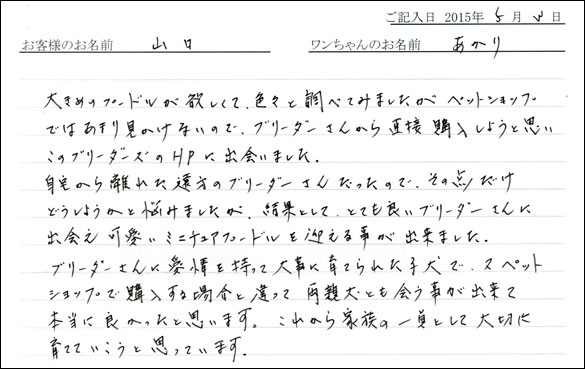 ご記入日 2015年 5月 日
お客様のお名前 山口 ワンちゃんのお名前 あかり
大きめのプードルが欲しくて、色々と調べてみましたがペットショップ
ではあまり見かけないので、ブリーダーさんから直接購入しようと思い
このブリーダーズのHPに出会いました。
自宅から離れた遠方のブリーダーさんだったので、その点だけ
どうしようかと悩みましたが、結果として、とても良いブリーダーさんに
出会え可愛いミニチュアプードルを迎える事が出来ました。
ブリーダーさんに愛情を持って大事に育てられた子犬で、又ペット
ショップで購入する場合と違って両親犬とも会う事が出来て
本当に良かったと思います。これから家族の一員として大切に
育てていこうと思っています。